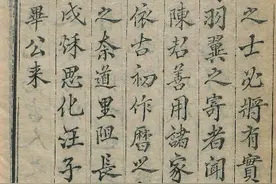 之士必將有實
羽翼之寄者聞
陳起善用諸家
依古初作曆之
之奈道里阻長
戊秌思化汪子
畢公来